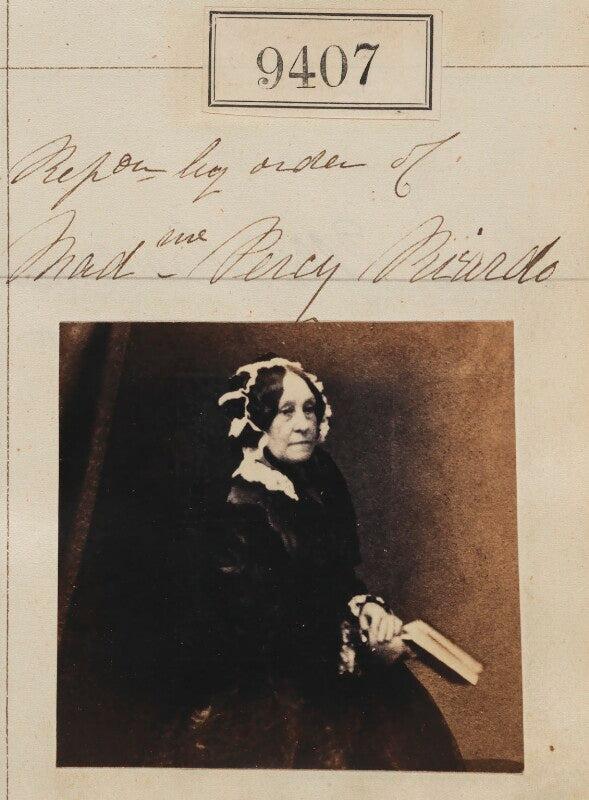 9407
Repon by order of
Madme Percy Ricardo